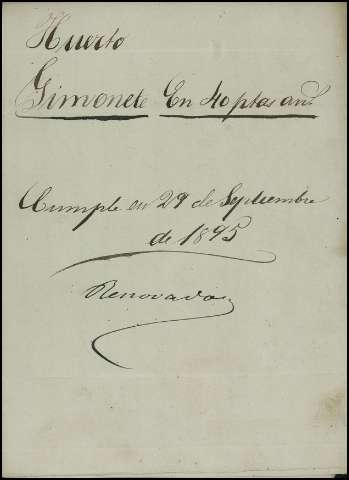 Huerto
Gimonete En 40 ptas an.
Cumple en 29 de Septiembre
de 1895
Renovada